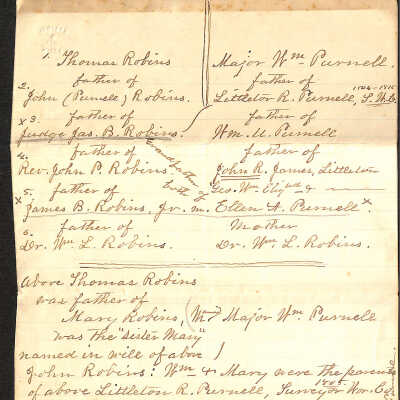 1. Thomas Robins Major Wm Purnell.
father of father of
1766-1815
2. John (Purnell) Robins. Littleton R. Purnell, S.W.C.
x 3. father of father of
Judge Jas. B. Robins. Wm. U. Purnell
4. father of father of
Rev. John P. Robins. John R. James, Littleton
Grandfather of both
5. father of Geo. Wm Elizth &
x James B. Robins, Jr. m. Ellen A. Purnell x
6. father of Mother
Dr. Wm L. Robins. Dr. Wm L. Robins.
Above Thomas Robins
was father of
Mary Robins (Md) Major Wm Purnell
was the "sister Mary"
named in will of above
John Robins: Wm & Mary were the parents
1805.
of above Littleton R. Purnell, Surveyor Wor. Co.